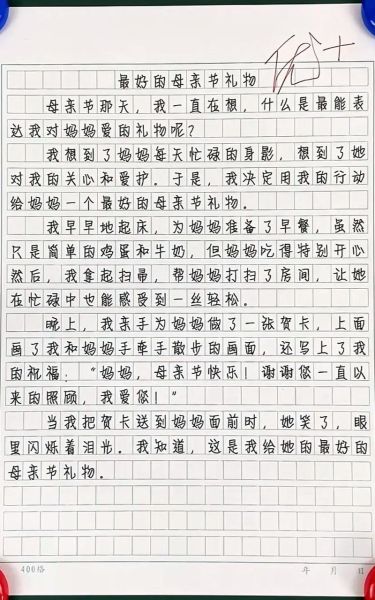 优+
最好的母亲节礼物
母亲节那天，我一直在想，什么是最能表
达我对妈妈爱的礼物呢？
我想到了妈妈每天忙碌的身影，想到了她
对我的关心和爱护。于是，我决定用我的行动
给妈妈一个最好的母亲节礼物。
我早早地起床，为妈妈准备了早餐，虽然
只是简单的鸡蛋和牛奶，但妈妈吃得特别开心
然后，我拿起扫帚，帮妈妈打扫了房间，让她
在忙碌中也能感受到一丝轻松。
晚上，我亲手为妈妈做了一张贺卡，上面
画了我和妈妈手牵手散步的画面，还写上了我
的祝福：“妈妈，母亲节快乐！谢谢您一直以
来的照顾，我爱您！”
当我把贺卡送到妈妈面前时，她笑了，眼
里闪烁着泪光。我知道，这是我给她的最好的
母亲节礼物。
400格 年 月 日